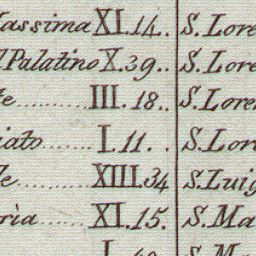 assima XI.14.. S. Lore
Palatino X.39.. S. Lore
te ......... III.18.. S. Loren
iato ........ I.11. . S. Lor
le .......... XIII.34 S. Luig
ria ......... XI.15. S. Ma
I. S. Ma